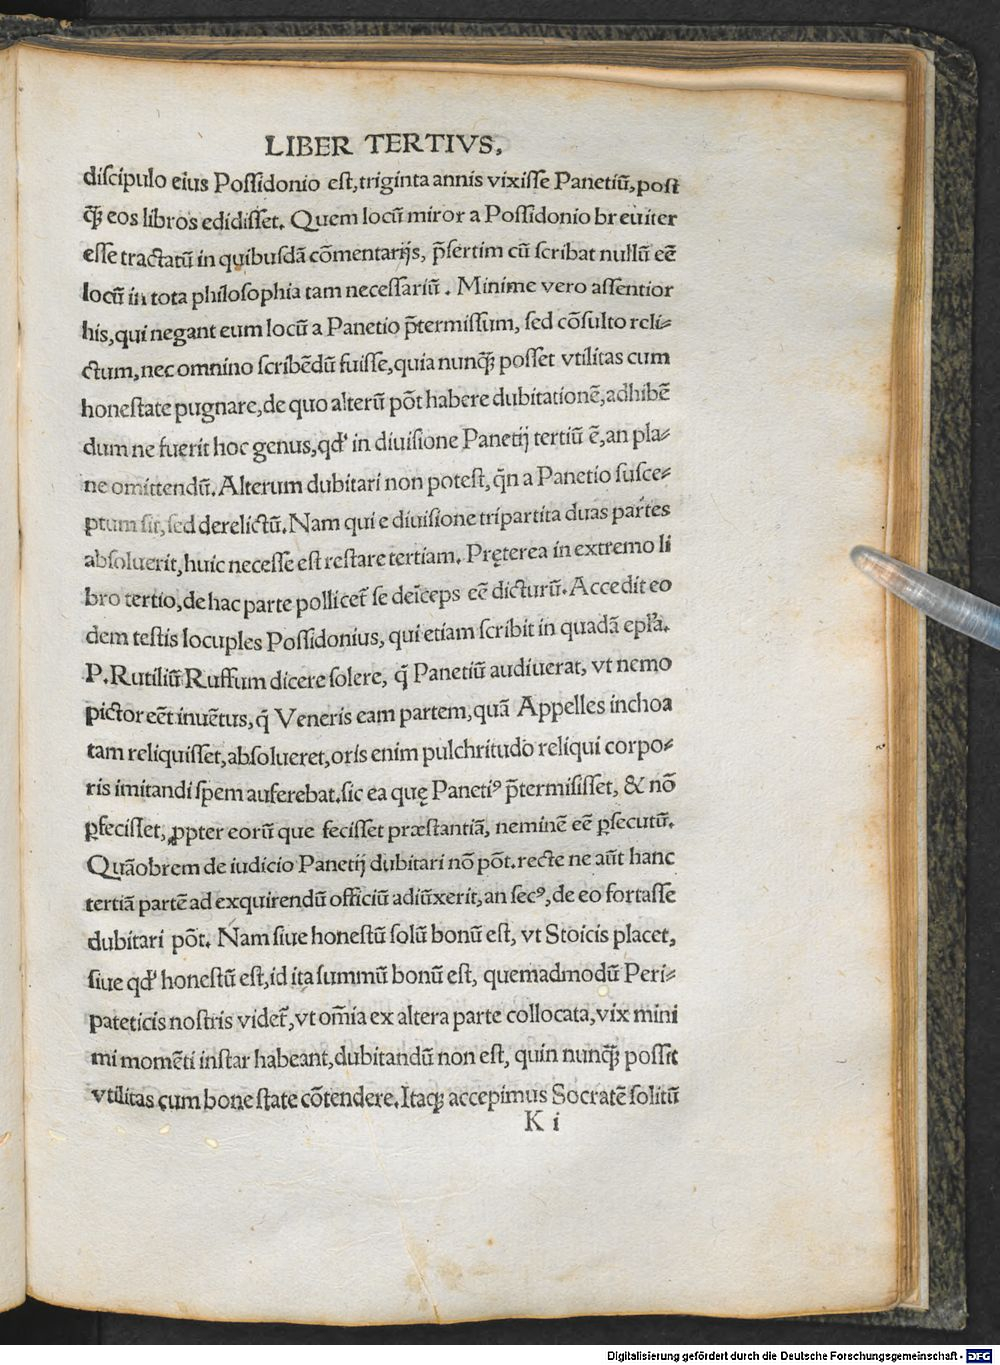 LIBER TERTIVS.
diſcipulo eius Poſſidonio eſt, triginta annis vixiſſe Panetiū, poſt
q̄ꝫ eos libros edidiſſet. Quem locū miror a Poſſidonio breuiter
eſſe tractatū in quibuſdā cōmentarijs, p̄ſertim cū ſcribat nullū eē
locū in tota philoſophia tam neceſſariū. Minime vero aſſentior
his, qui negant eum locū a Panetio p̄termiſſum, ſed cōſulto reli⸗
ctum, nec omnino ſcribēdū fuiſſe, quia nunq̄ꝫ poſſet vtilitas cum
honeſtate pugnare, de quo alterū pōt habere dubitationē, adhibē
dum ne fuerit hoc genus, qđ in diuiſione Panetij tertiū ē, an pla⸗
ne omittendū. Alterum dubitari non poteſt, qn̄ a Panetio ſuſce⸗
ptum ſit, ſed derelictū. Nam qui e diuiſione tripartita duas partes
abſoluerit, huic neceſſe eſt reſtare tertiam. Pręterea in extremo li
bro tertio, de hac parte pollicet̄ ſe deīceps eē dicturū. Accedit eo
dem teſtis locuples Poſſidonius, qui etiam ſcribit in quadā epl̄a.
P. Rutiliū Ruffum dicere ſolere, q̄ Panetiū audiuerat, vt nemo
pictor eēt inuētus, q̄ Veneris eam partem, quā Appelles inchoa
tam reliquiſſet, abſolueret, oris enim pulchritudo reliqui corpo⸗
ris imitandi ſpem auferebat. ſic ea quę Panetiꝰ p̄termiſiſſet, & nō
ꝑfeciſſet, ꝓpter eorū que feciſſet præſtantiā, neminē eē ꝑſecutū.
Quāobrem de iudicio Panetij dubitari nō pōt. recte ne aūt hanc
tertiā partē ad exquirendū officiū adiūxerit, an ſecꝰ, de eo fortaſſe
dubitari pōt. Nam ſiue honeſtū ſolū bonū eſt, vt Stoicis placet,
ſiue qđ honeſtū eſt, id ita ſummū bonū eſt, quemadmodū Peri⸗
pateticis noſtris videt̄, vt om̄ia ex altera parte collocata, vix mini
mi momēti inſtar habeant, dubitandū non eſt, quin nunq̄ꝫ poſſit
vtilitas cum boneſtate cōtendere. Itaqꝫ accepimus Socratē ſolitū
K i
Digitalisierung gefördert durch die Deutsche Forschungsgemeinschaft - DFG